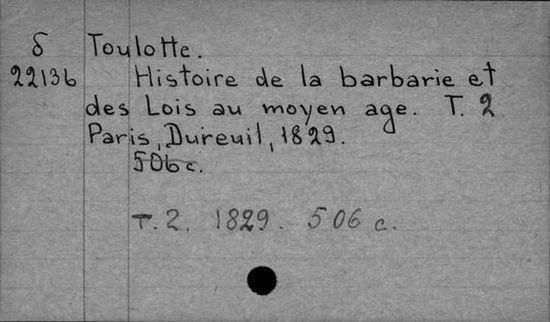 δ Toulotte.
22136 Histoire de la barbarie et
des Lois au moyen age. T. 2
Paris, Dureuil, 1829.
506 c.
T. 2. 1829. 506 c.